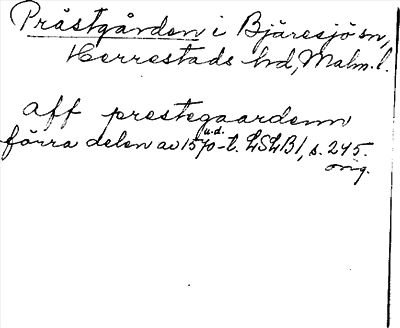 Prästgården i Bjäresjö sn,
Herrestads hd, Malm.l.
aff prestegaardenn
u.d.
förra delen av 1570-t. LSLB1, s. 245.
orig.